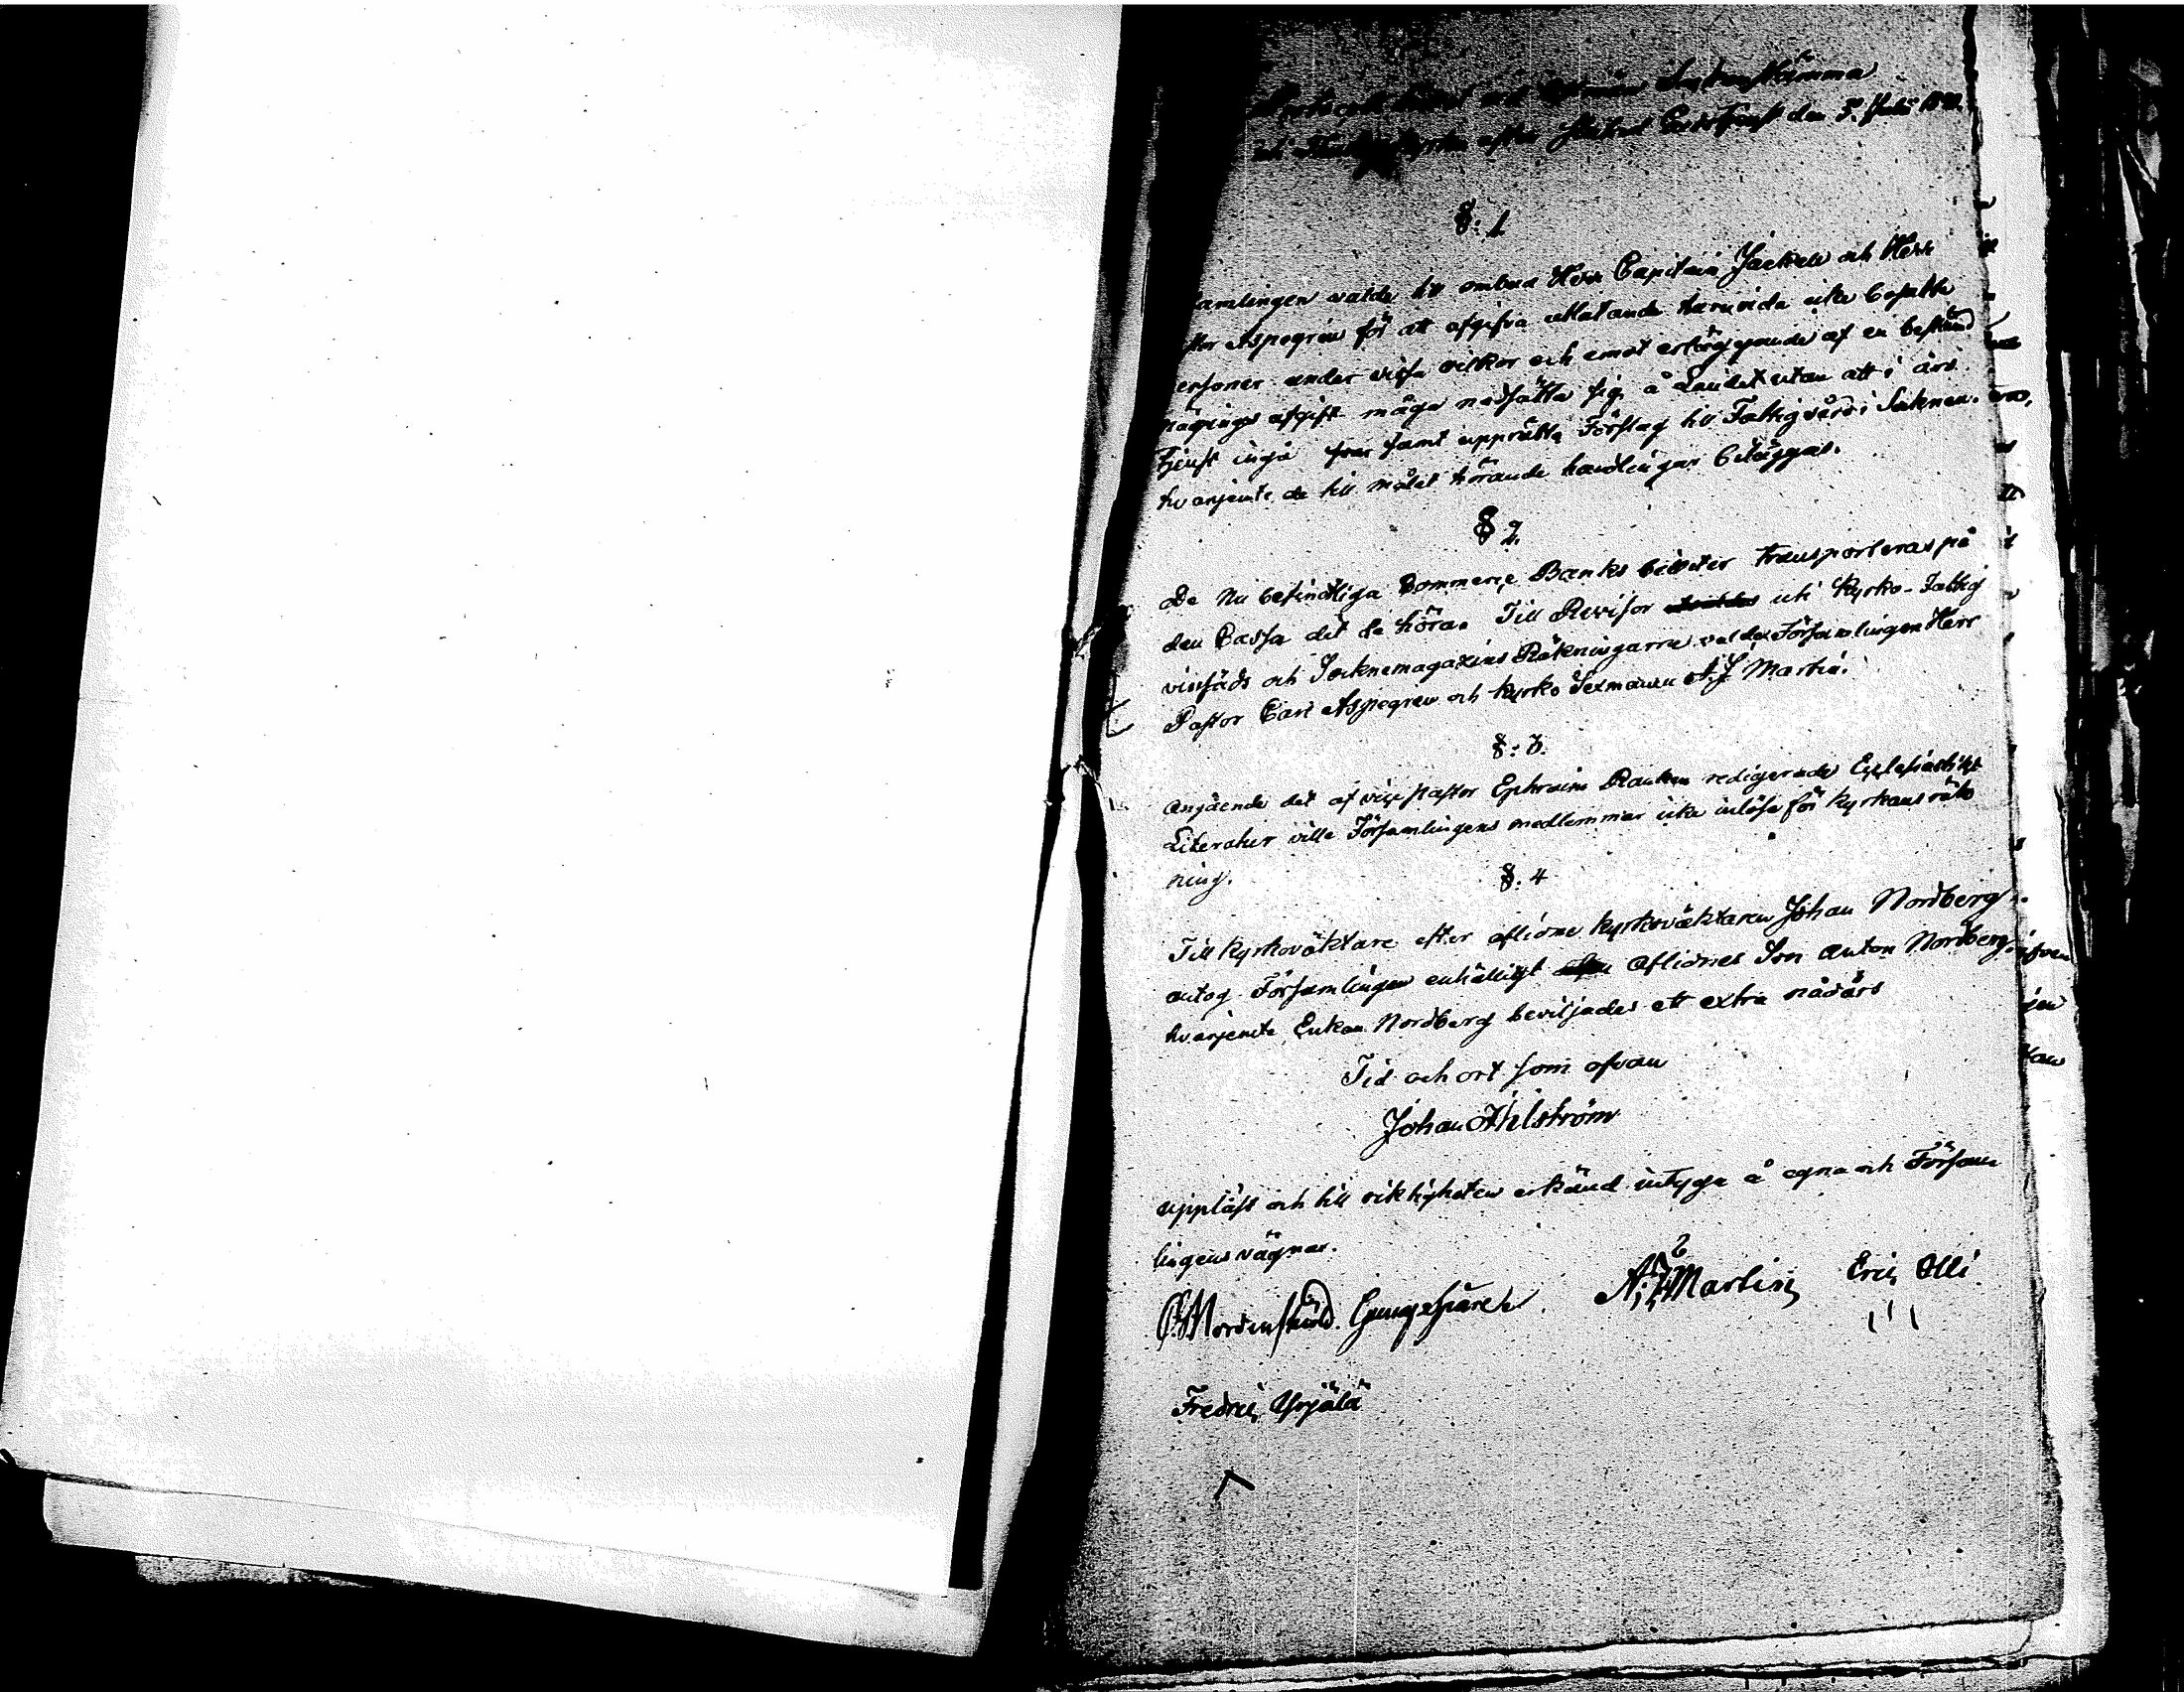 Sockenstämma
kyrkan efter slutad Gudstjenst den 5. Juli
§: 1
samlingen valde till ombud Herr Capitain Jack och Herr
stor Aspegren för att afgifva utlåtande huruvida icke besutte
ersoner under vissa vilkor och emot erläggande af en bestämd
nägings afgift måga nedsätta sig å Landet utan att i års
tjenst ingå samt upprätta Förslag till Fattigvård i Soknen.
hvarjemte de till målet hörande handlingar biläggas.
§ 2.
De nu befindtliga Commerce Banks billeter transporteras på
den Cassa dit de höra. Till Revisor uti Kyrko-Fattig
och Socknemagazins Räkningarne valde Församlingen Herr
Pastor Carl Aspegren och Kyrko Sexmannen A: J Martin.
§: 3.
Angående det af vice pastor Ephraim redigerade Ecclesiastikt
Literatur ville Församlingens medlemmar icke inlösa för kyrkans räk
ning.
§: 4
Till kyrkoväktare efter aflidne kyrkoväktaren Johan Nordberg
antog Församlingen enhälligt Aflidnes Son Anton Nordberg.
hvarjemte Enkan Nordberg beviljades ett extra nådårs
Tid och ort som ofvan
Johan Ahlström
Uppläst och till riktigheten erkänd intyga å egna och Försam
lingens vägnar.
Nordensköld. A: J: Martin Eric Olli
Fredric Yrjälä